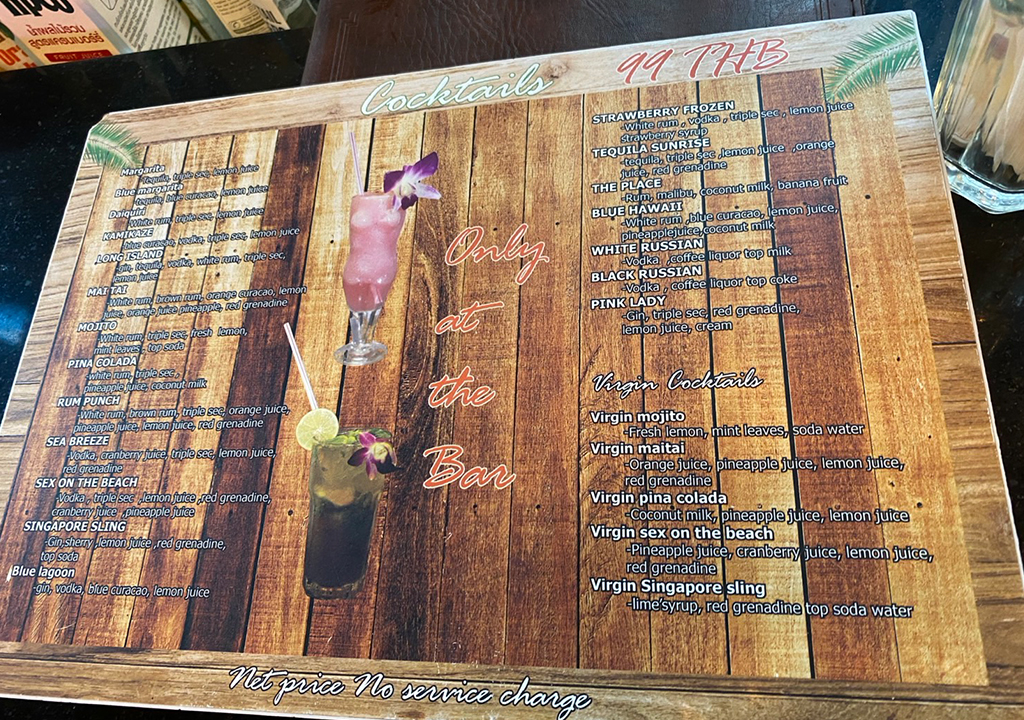 น้ำผลไม้รวม
FRUIT JUICE
Cocktails
99 THB
Margarita
-Tequila, triple sec, lemon juice
Blue margarita
-tequila, blue curacao, lemon juice
Daiquiri
-White rum, triple sec, lemon juice
KAMIKAZE
-blue curacao, vodka, triple sec, lemon juice
LONG ISLAND
-gin, tequila, vodka, white rum, triple sec,
lemon juice
MAI TAI
-White rum, brown rum, orange curacao, lemon
juice, orange juice pineapple, red grenadine
MOJITO
-White rum, triple sec, fresh lemon,
mint leaves - top soda
PINA COLADA
-white rum, triple sec,
pineapple juice, coconut milk
RUM PUNCH
-White rum, brown rum, triple sec, orange juice,
pineapple juice, lemon juice, red grenadine
SEA BREEZE
-Vodka, cranberry juice, triple sec, lemon juice,
red grenadine
SEX ON THE BEACH
-Vodka , triple sec ,lemon juice ,red grenadine,
cranberry juice ,pineapple juice
SINGAPORE SLING
-Gin,sherry ,lemon juice ,red grenadine,
top soda
Blue lagoon
-gin, vodka, blue curacao, lemon juice
Only
at
the
Bar
STRAWBERRY FROZEN
-White rum , vodka , triple sec , lemon juice
strawberry syrup
TEQUILA SUNRISE
-tequila, triple sec ,lemon juice ,orange
juice, red grenadine
THE PLACE
-Rum, malibu, coconut milk, banana fruit
BLUE HAWAII
-White rum ,blue curacao, lemon juice,
pineapplejuice,coconut milk
WHITE RUSSIAN
-Vodka ,coffee liquor top milk
BLACK RUSSIAN
-Vodka , coffee liquor top coke
PINK LADY
-Gin, triple sec, red grenadine,
lemon juice, cream
Virgin Cocktails
Virgin mojito
-Fresh lemon, mint leaves, soda water
Virgin maitai
-Orange juice, pineapple juice, lemon juice,
red grenadine
Virgin pina colada
-Coconut milk, pineapple juice, lemon juice
Virgin sex on the beach
-Pineapple juice, cranberry juice, lemon juice,
red grenadine
Virgin Singapore sling
-lime'syrup, red grenadine top soda water
Net price No service charge